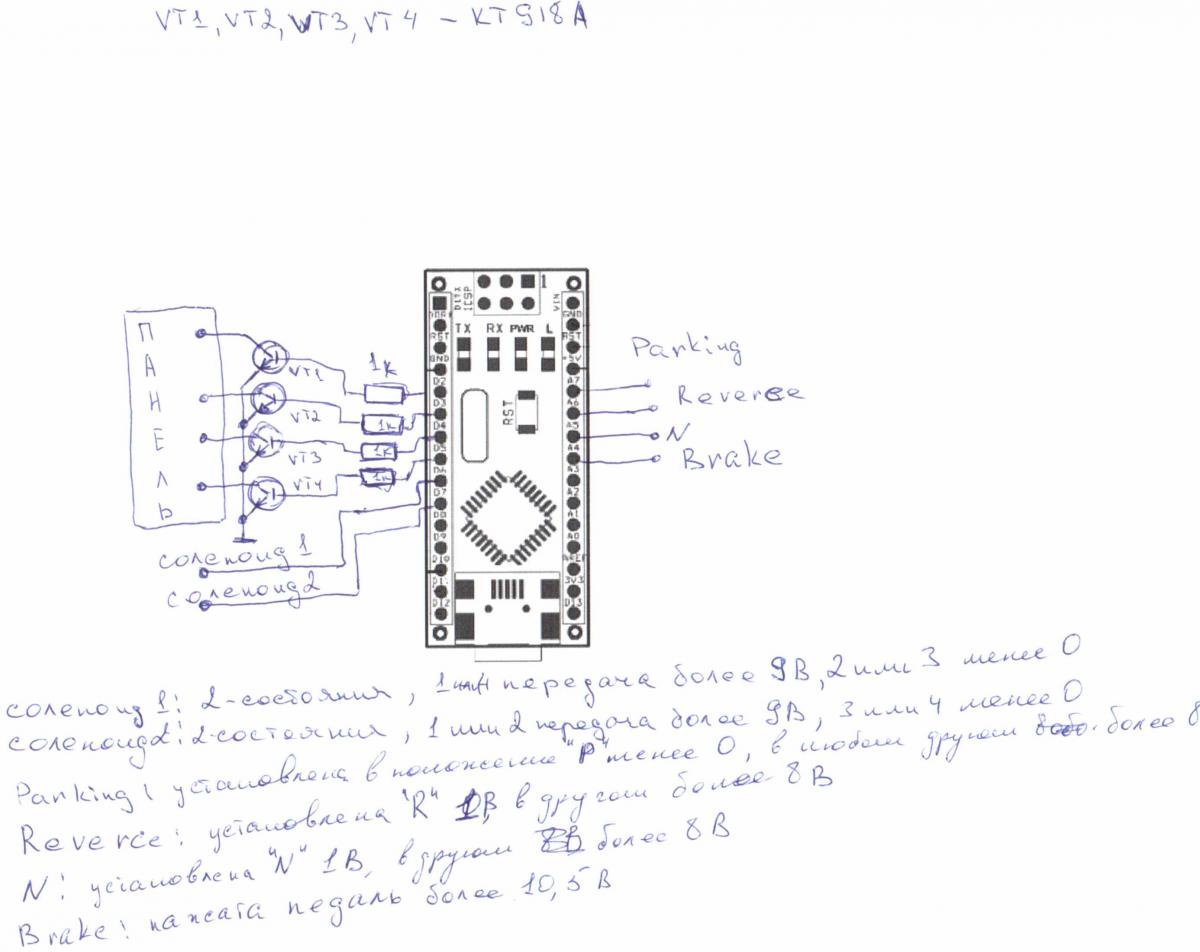 VT1, VT2, VT3, VT4 - KT918A
Parking
Reverce
N
Brake
ПАНЕЛЬ
VT1
VT2
VT3
VT4
1к
1к
1к
1к
соленоид 1
соленоид 2
ICSP
1
DITX
VIN
TX RX PWR L
RST
GND
D2
D3
D4
D5
D6
D7
D8
D9
D10
D11
D12
GND
RST
+5V
A7
A6
A5
A4
A3
A2
A1
A0
AREF
3V3
D13
RST
соленоид 1: 2-состояния, 1 или 4 передача более 9В, 2 или 3 менее 0
соленоид 2: 2-состояния, 1 или 2 передача более 9В, 3 или 4 менее 0
Parking: установлена в положение "P" менее 0, в любом другом более 8
Reverce: установлена "R" 1В, в другом более 8 В
N: установлена "N" 1В, в другом более 8 В
Brake: нажата педаль более 10,5 В